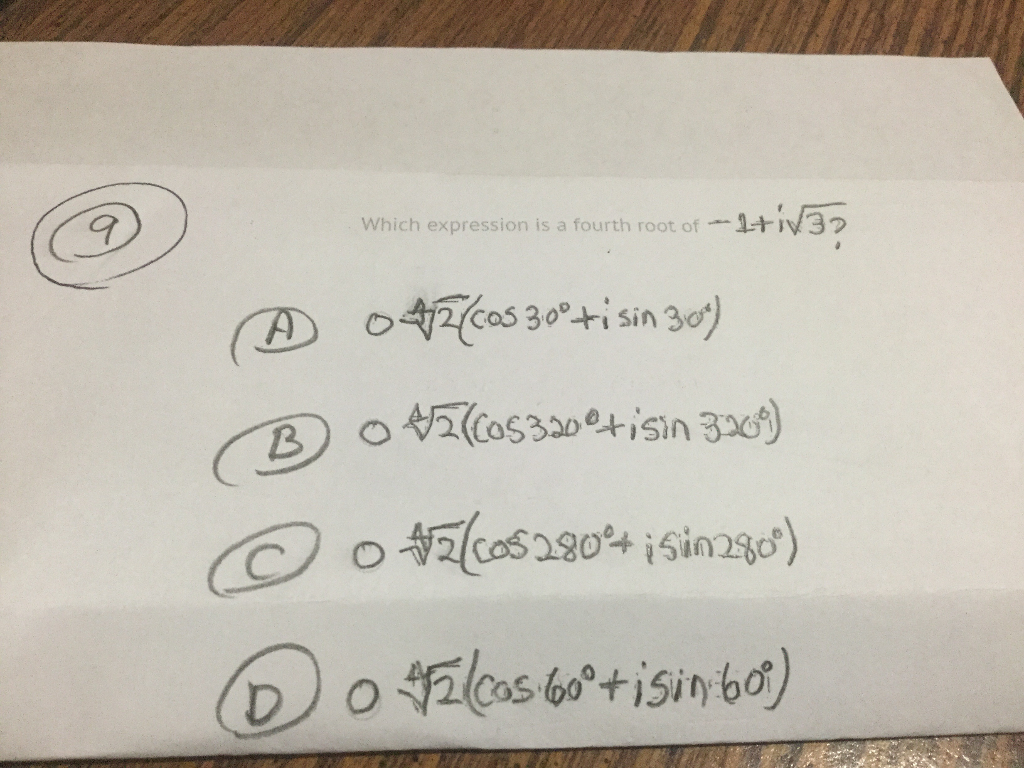 9
Which expression is a fourth root of -1+i√3?
A ○ ∜2(cos30°+i sin 30°)
B ○ ∜2(cos320°+isin 320°)
C ○ ∜2(cos280°+ isin280°)
D ○ ∜2(cos 60°+isin 60°)